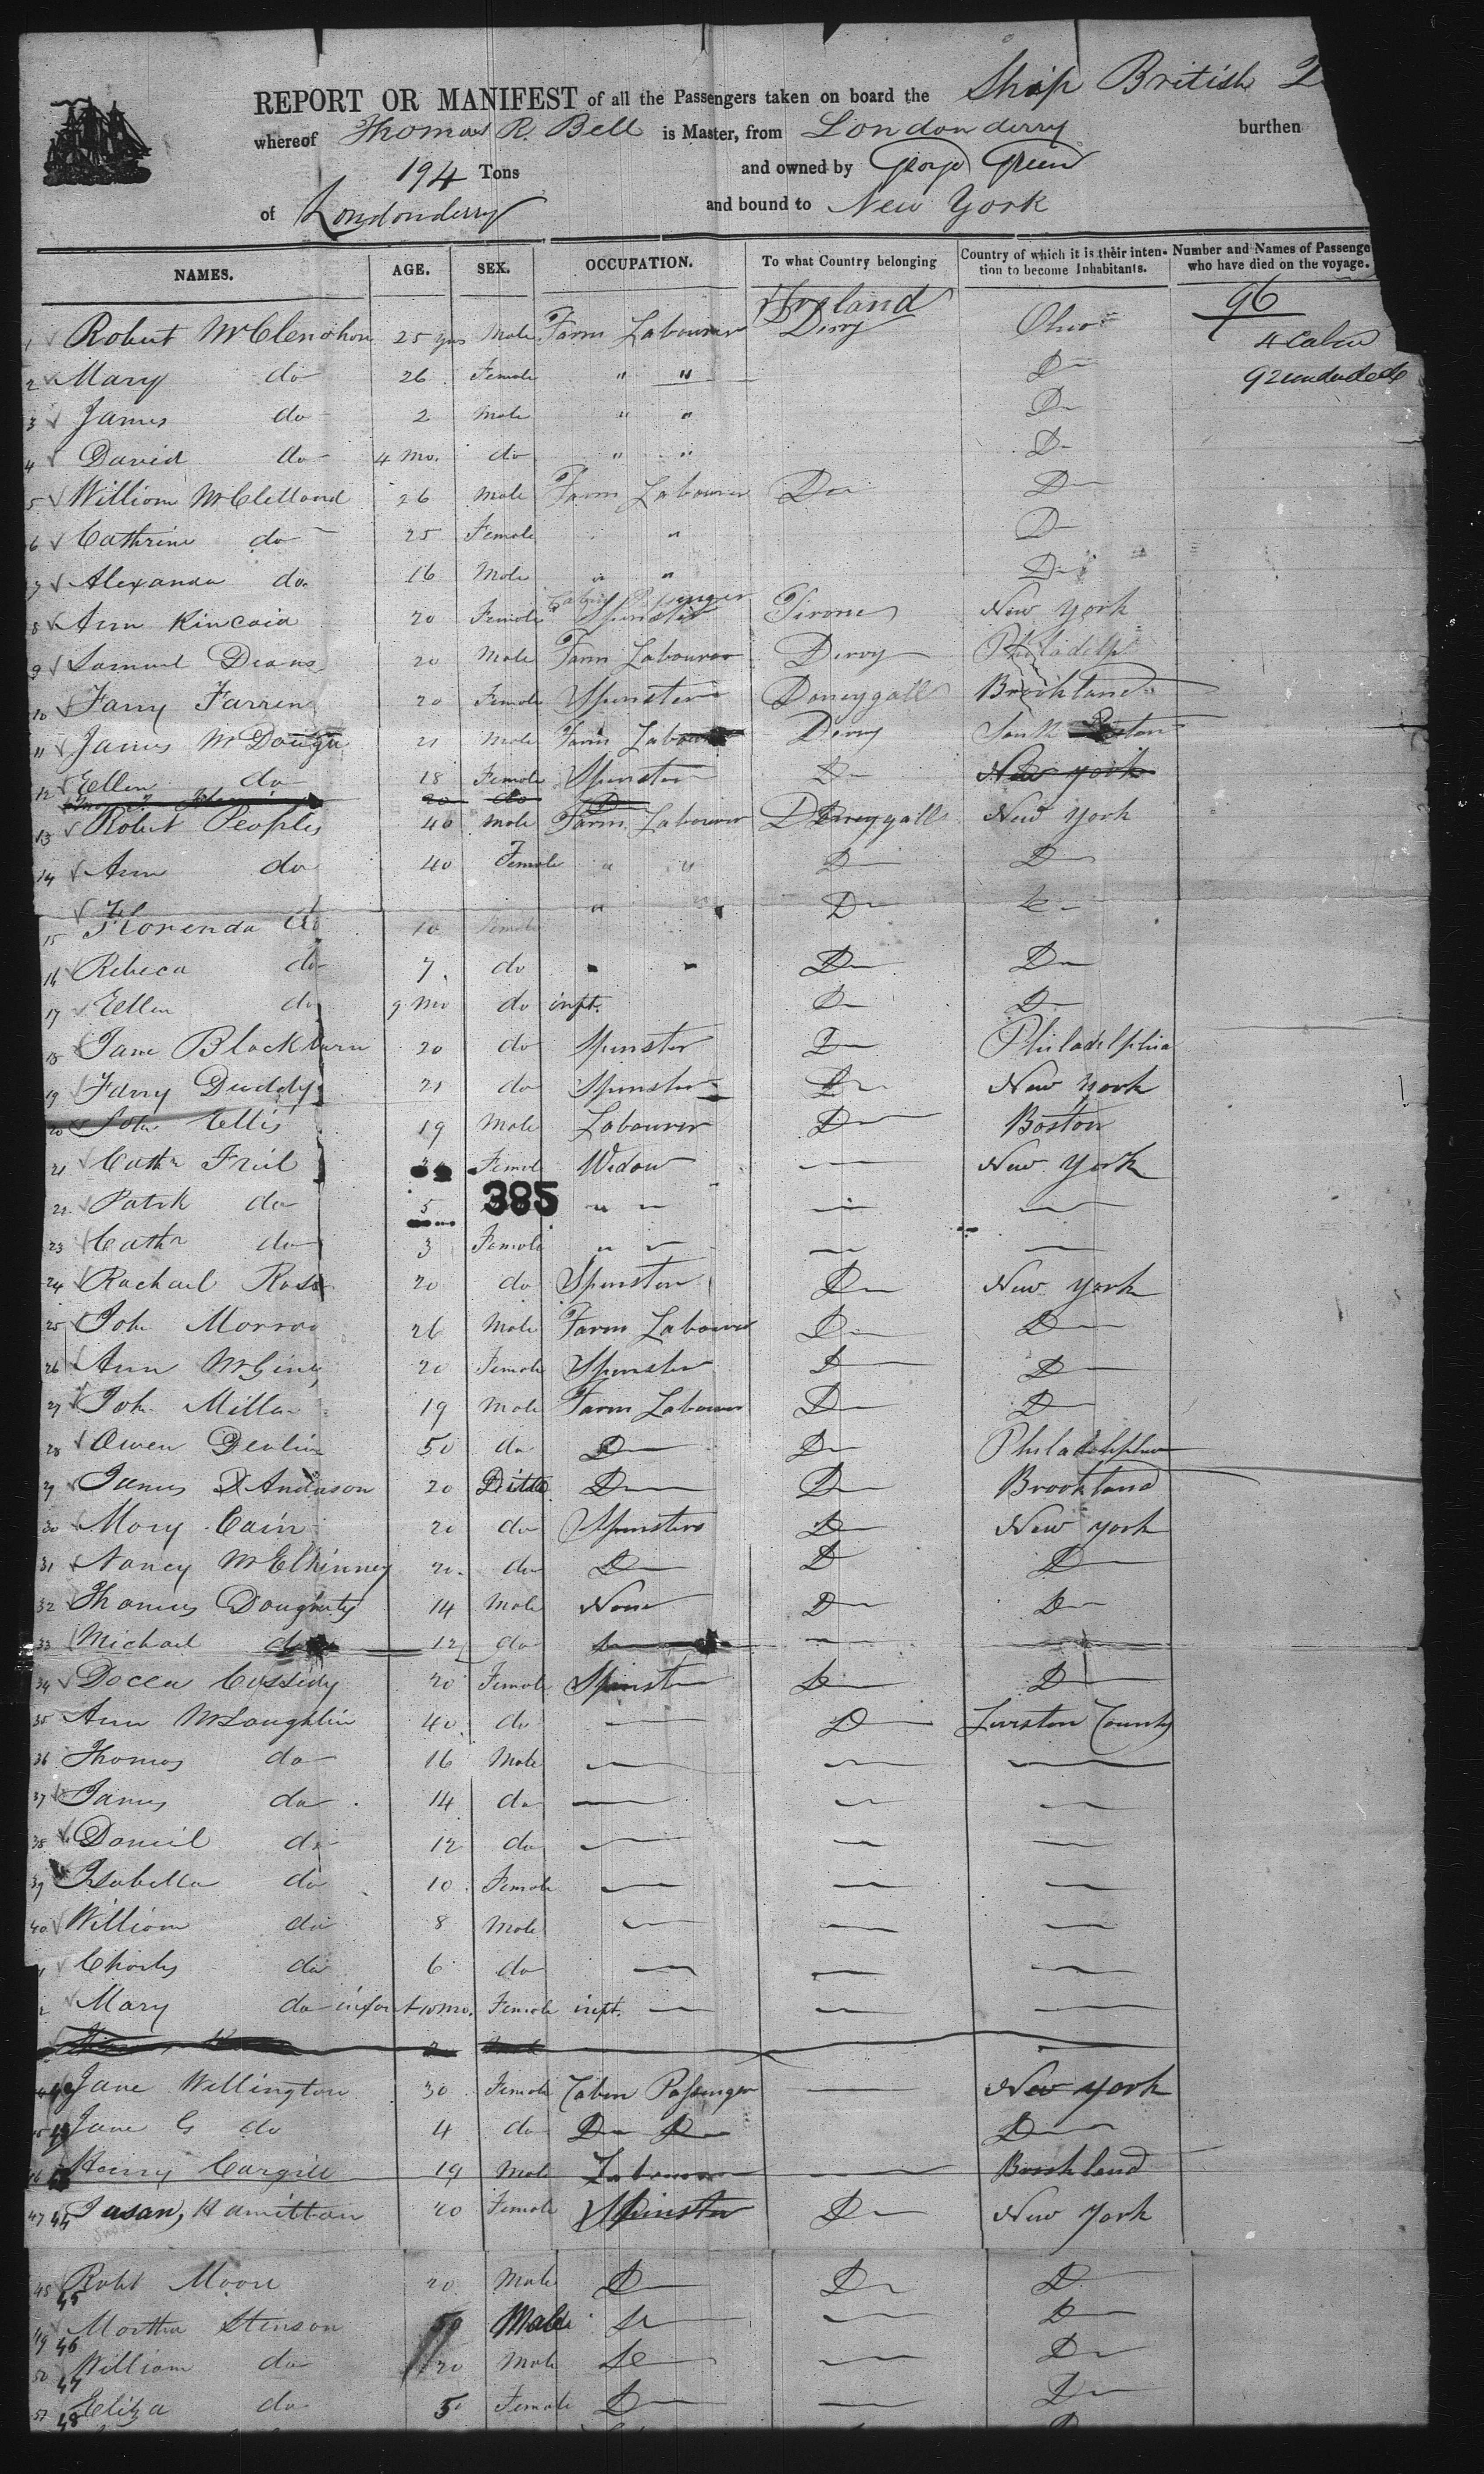 REPORT OR MANIFEST of all the Passengers taken on board the Ship British
whereof Thomas R. Bell is Master, from Londonderry burthen
194 Tons and owned by George Green
of Londonderry and bound to New York
NAMES. AGE. SEX. OCCUPATION. To what Country belonging Country of which it is their intention to become Inhabitants. Number and Names of Passenge who have died on the voyage.
Ireland 96
1 Robert McClenohon 25 yrs Male Farm Labourer Derry Ohio 4 Cabin
2 Mary do 26 Female " " D 92
3 James do 2 Male " " D
4 David do 4 Mo. do " " D
5 William McClelland 26 Male Farm Labourer Do D
6 Cathrine do 25 Female " D
7 Alexander do. 16 Male " " D
Cabin Passenger
8 Ann Kincaid 20 Female Spinster Tirone New York
9 Samuel Deans 20 Male Farm Labourer Derry Philadelp
10 Fany Farren 20 Female Spinster Doneygall Brookland
11 James McDough 21 Male Farm Labourer Derry South Boston
12 Ellen do 18 Female Spinster D New York
20 do D
13 Robert Peoples 40 Male Farm Labourer Doneygall New York
14 Ann do 40 Female " " D D
15 Florenda do 10 Female " D
16 Rebeca do 7 do " " D D
17 Ellen do 9 Mo do inft. D D
18 Jane Blackburn 20 do Spinster D Philadelphia
19 Fany Duddy 21 do Spinster D New York
20 John Ellis 19 Male Labourer D Boston
21 Cathn Friel Female Widow New York
22 Patrk do 5 385 " "
23 Cathn do 3 Female " "
24 Rachael Ross 20 do Spinster D New York
25 John Morrow 26 Male Farm Labourer D D
26 Ann McGinly 20 Female Spinster D D
27 John Millar 19 Male Farm Labourer D D
28 Owen Devlin 50 do D D Philadelphia
29 James Anderson 20 Ditto D D Brookland
30 Mary Cain 20 do Spinsters D New York
31 Nancy McElhinney 20 do D D D
32 Thomas Dougherty 14 Male None D D
33 Michael do 12 do
34 Docea Cassedy 20 Female Spinster D D
35 Ann McLaughlin 40 do D Leviston County
36 Thomas do 16 Male
37 James do 14 do
38 Daniel do 12 do
39 Isabella do 10 Female
40 William do 8 Male
Charles do 6 do
Mary do infant 10 mo. Female inft.
Jane Wellington 30 Female Cabin Passenger New York
Jane G do 4 do D D D
46 Henry Cargill 19 Male Labourer Brookland
47 44 Susan Hamilton 20 Female Spinster D New York
48 45 Robt Moore 20 Male D D D
49 46 Martha Stinson 50 Male D
50 47 William do 20 Male D
51 48 Eliza do 5 Female D D